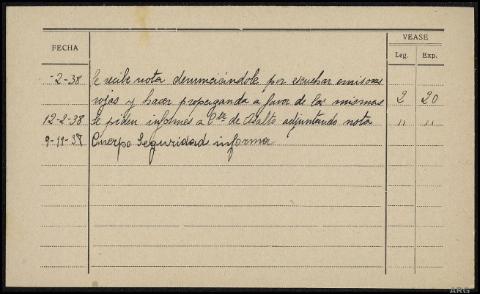 VEASE
FECHA Leg. Exp.
-2-38 Se recibe nota denunciándole por escuchar emisoras
rojas y hacer propaganda a favor de las mismas 2 20
12-2-38 Se piden informes a Cte de Asalto adjuntando nota " "
9-11-37 Cuerpo Seguridad informa
ARG